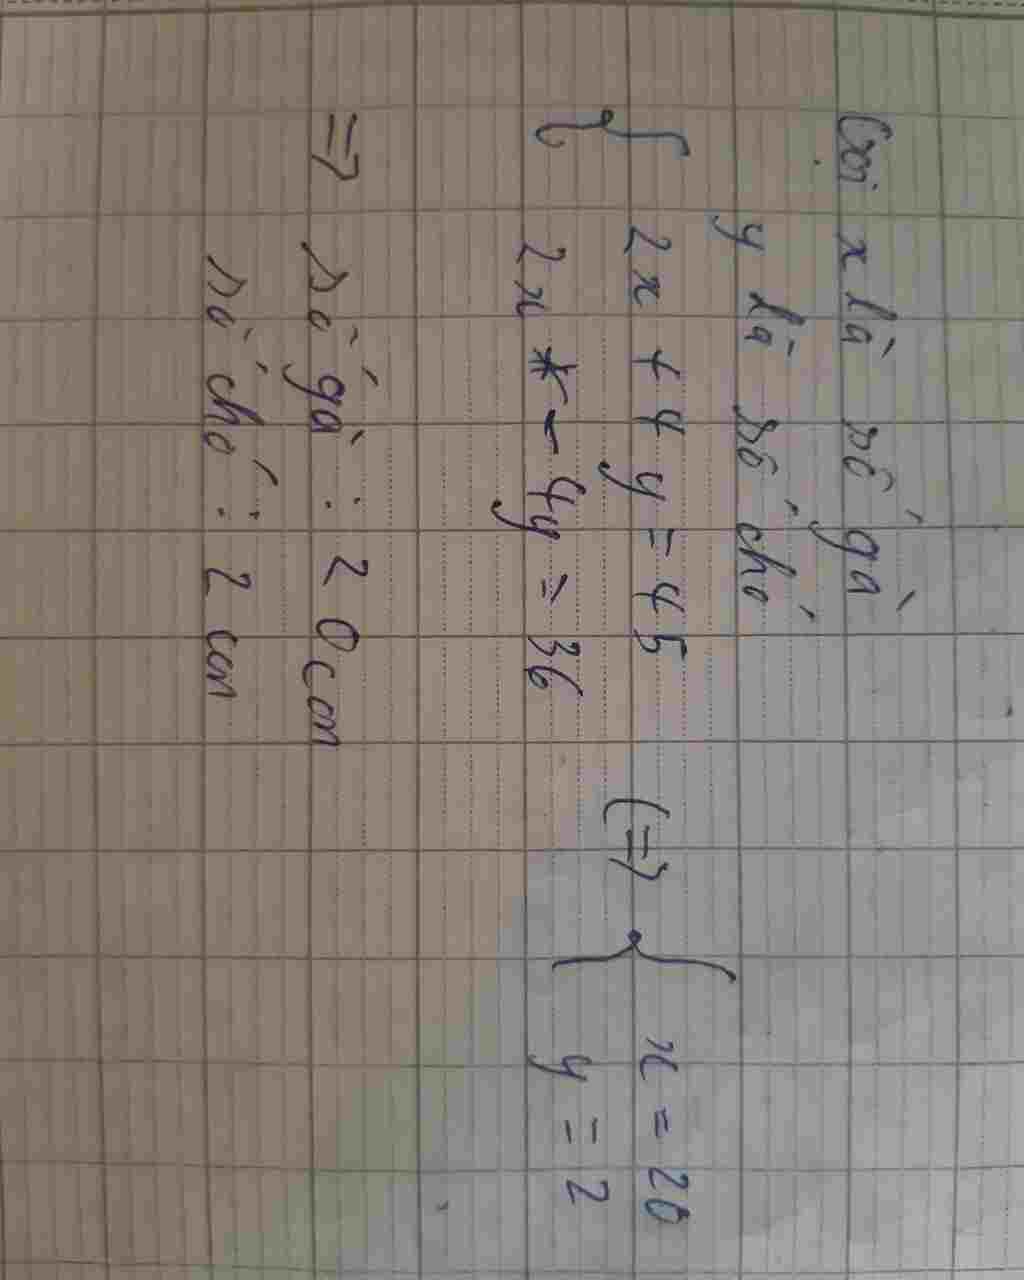 Gọi x là số gà
y là số chó
2x + 4y = 45
2x - 4y = 36
(=>
x = 20
y = 2
=> số gà : 20 con
số chó : 2 con